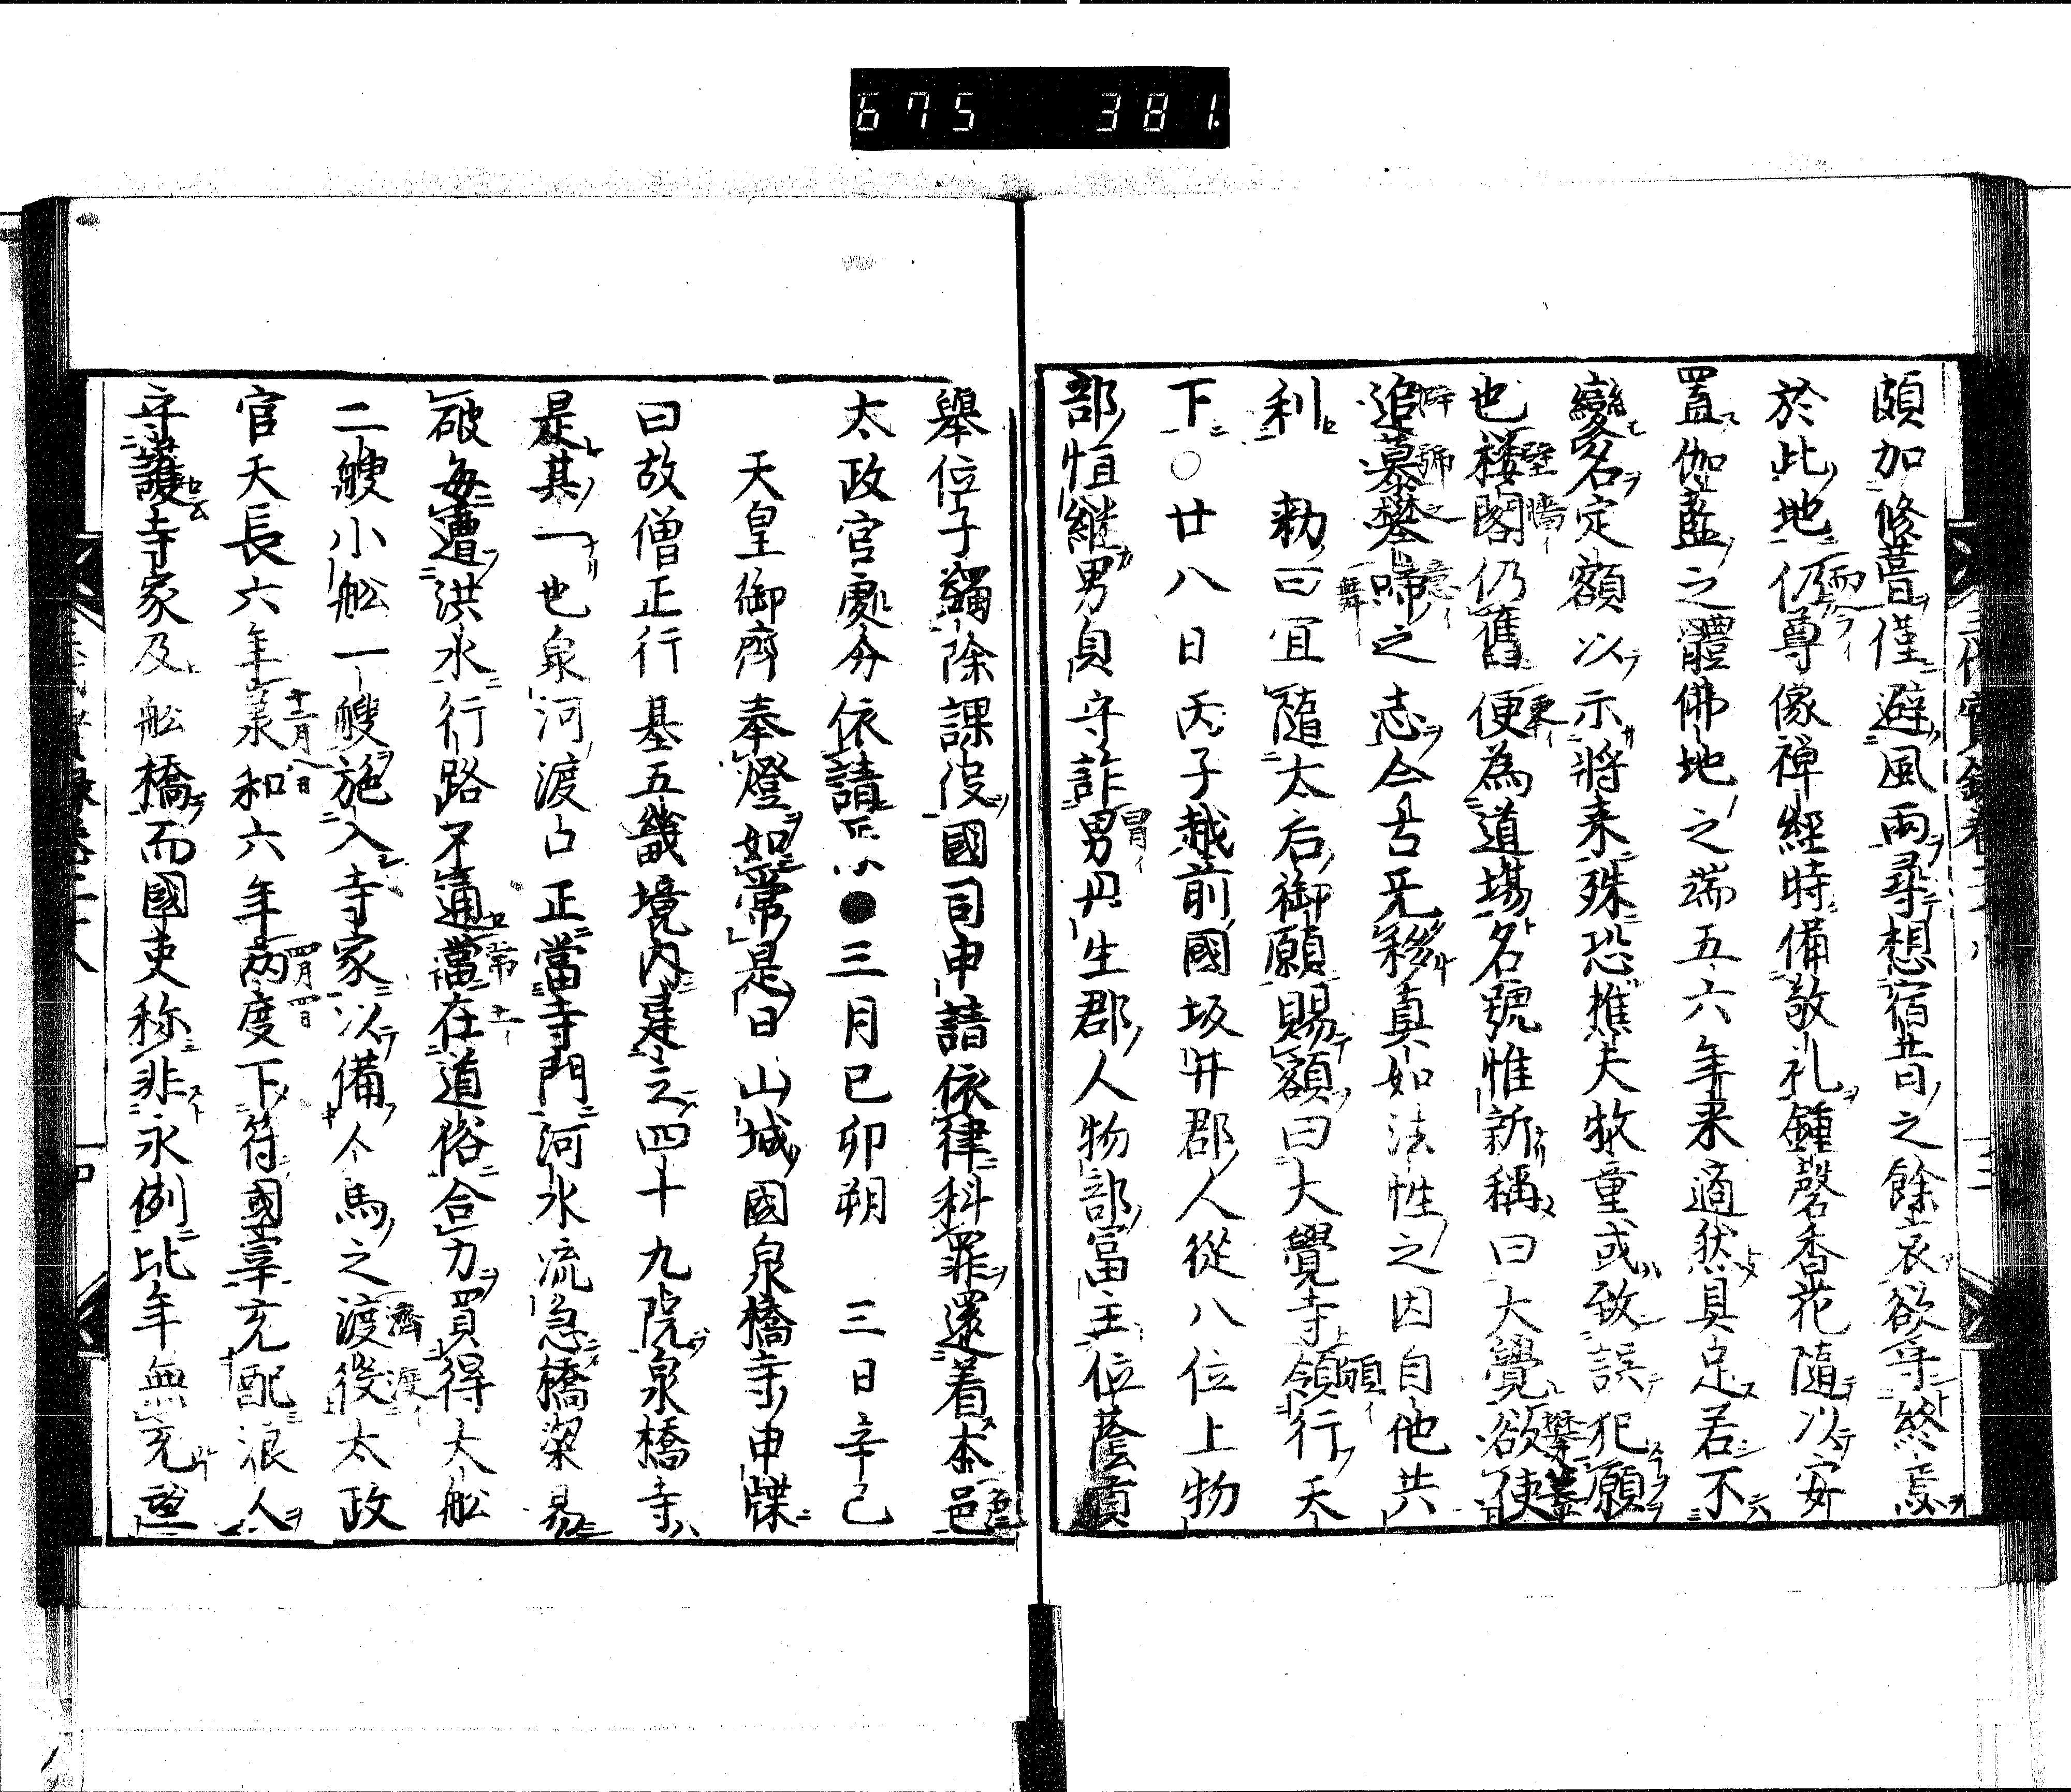 675 381
頗加修葺僅避風雨尋想宿昔之餘哀欲守終焉
於此地仍尊像禅經時備敬礼鍾磬香花隨以安
置伽藍之體佛地之端五六年来適然具足若不
變名定額以示将来殊恐樵夫牧童或致誤犯願
也楼閣仍舊便為道場名號惟新稱曰大覺欲使
追慕攀啼之志今古无移真如法性之因自他共
利 勅曰宜隨太后御願賜額曰大覺寺領行天
下○廿八日丙子越前國坂井郡人從八位上物
部恒継男貞守詐男丹生郡人物部富主位蔭貢
舉位子蠲除課役國司申請依律科罪還着本邑
太政官處分依請三月己卯朔 三日辛己
天皇御齊奉燈如常是日山城國泉橋寺申牒
曰故僧正行基五畿境内建立四十九院泉橋寺
是其一也泉河渡口正當寺門河水流急橋梁易
破毎遭洪水行路不通當在道俗合力買得大舩
二艘小舩一艘施入寺家以備人馬之渡役太政
官天長六年承和六年兩度下符國宰充配浪人
守護寺家及舩橋而國吏称非永例比年無充